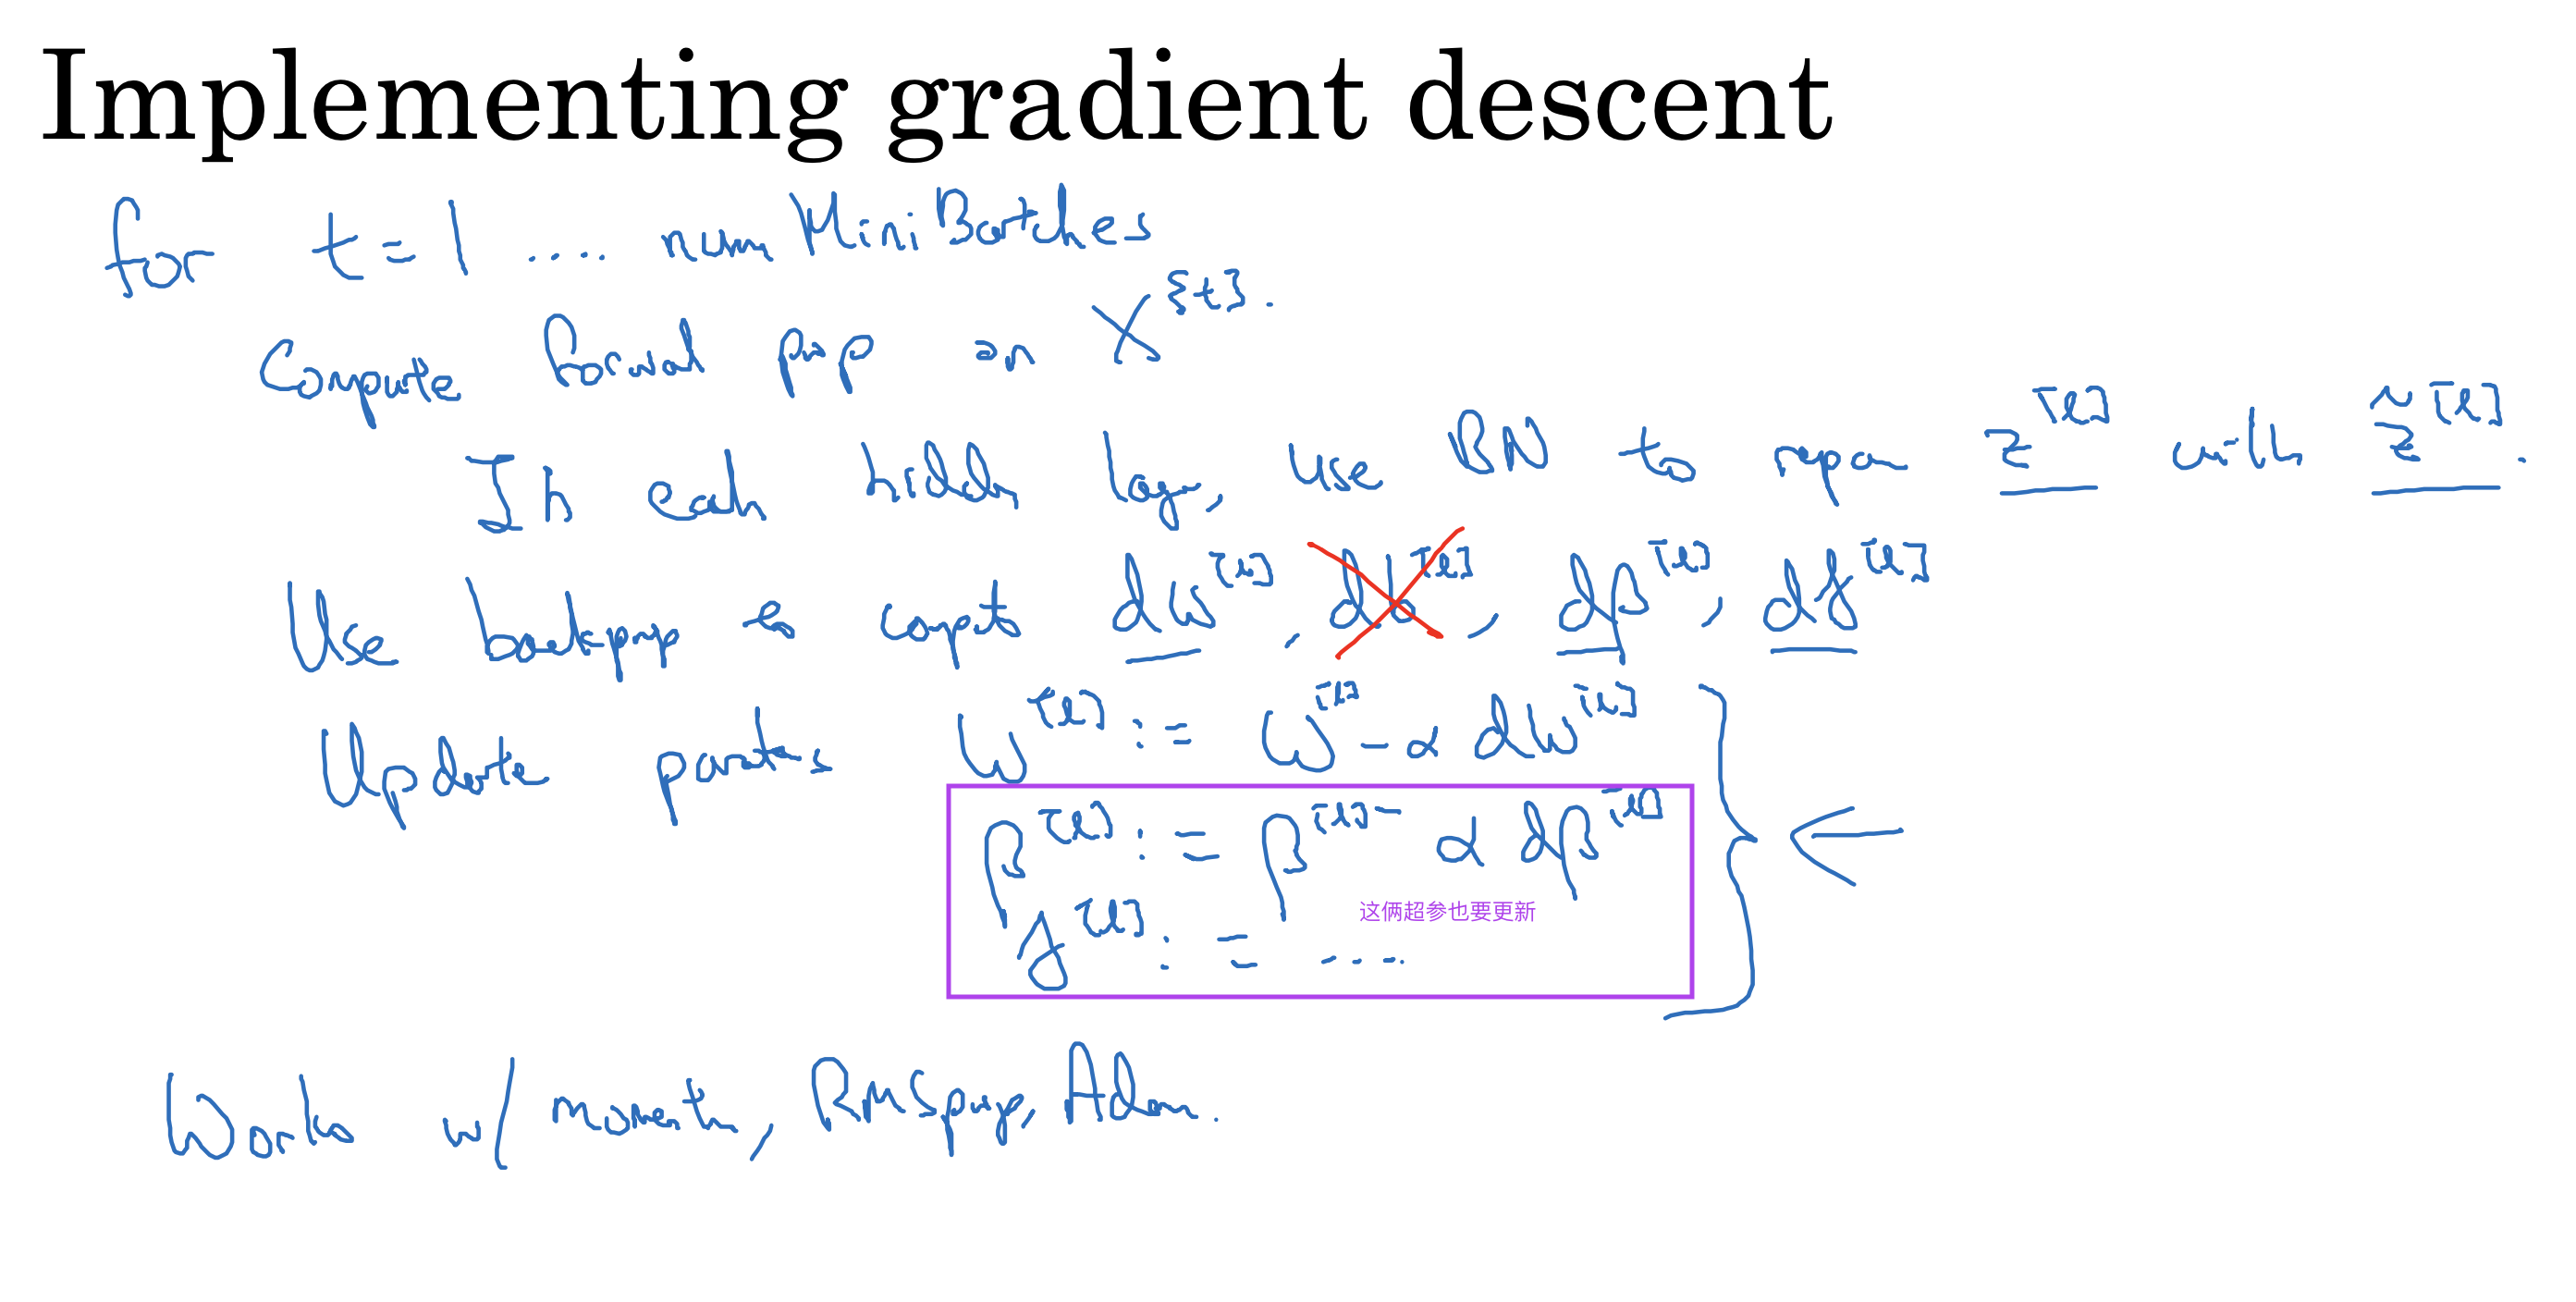 Implementing gradient descent
for t = 1 .... num Mini Batches
Compute forward prop on X^{t}.
In each hidden layer, use BN to replace z^[l] with z̃^[l].
Use backprop to compute dW^[l], db^[l], dβ^[l], dγ^[l]
Update parameters W^[l] := W^[l] - α dW^[l]
β^[l] := β^[l] - α dβ^[l]
这俩超参也要更新
γ^[l] := ....
Works w/ momentum, RMSprop, Adam.